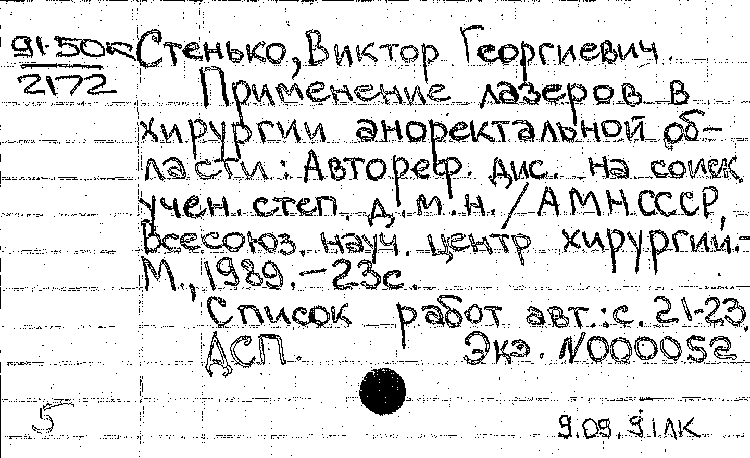 91-50к Стенько, Виктор Георгиевич.
2172 Применение лазеров в
хирургии аноректальной об-
ласти: Автореф. дис. на соиск.
учен. степ. д.м.н. / АМН СССР,
Всесоюз. науч. центр хирургии.-
М., 1989. - 23с.
Список работ авт.: с. 21-23.
ДСП. Экз. N000052
5 9.09.91 ЛК